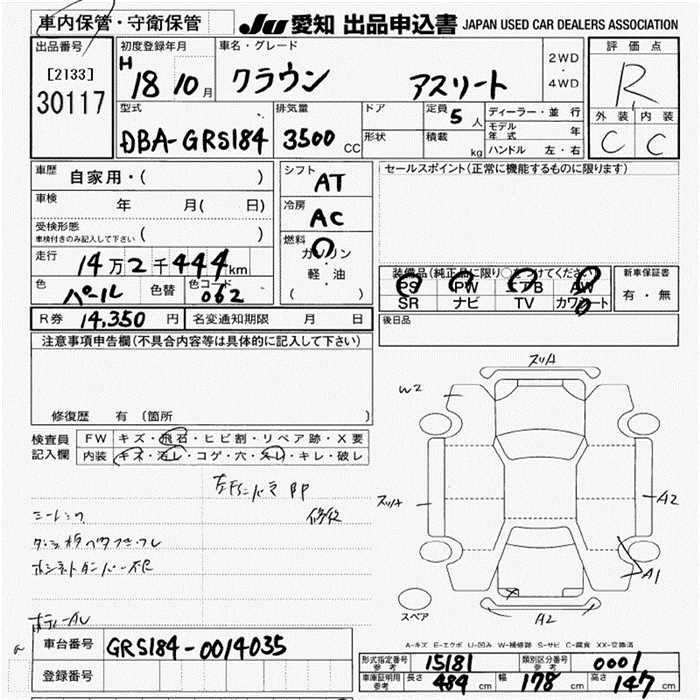 車内保管・守衛保管
JU 愛知 出品申込書 JAPAN USED CAR DEALERS ASSOCIATION
出品番号
[2133]
30117
初度登録年月
H 18 10 月
車名・グレード
クラウン アスリート
2WD
・
4WD
評価点
R
外装 内装
C C
型式
DBA-GRS184
排気量
3500 CC
ドア
形状
定員 5 人
積載 kg
ディーラー・並行
モデル年式 年
ハンドル 左・右
車歴
自家用・( )
車検 年 月( 日)
受検形態
車検付きのみ記入して下さい ( )
走行
14万2千444km
色 パール 色替 色コード 062
シフト AT
冷房 AC
燃料
ガソリン
・
軽油
( )
セールスポイント(正常に機能するものに限ります)
装備品(純正品に限り○をつけてください)
PS PW エアB AW
SR ナビ TV カワシート
新車保証書
有・無
R券 14,350 円 名変通知期限 月 日
後日品
注意事項申告欄(不具合内容等は具体的に記入して下さい)
修復歴 有 (箇所 )
検査員記入欄
FW キズ・飛石・ヒビ割・リペア跡・X要
内装 キズ・汚レ・コゲ・穴・スレ・キレ・破レ
PP
修役
ボディーAU
スリA
W2
スリA
A2
A1
A2
スペア
A-キズ E-エクボ U-凹み W-補修跡 S-サビ C-腐食 XX-交換済
車台番号 GRS184-0014035
登録番号
形式指定番号 参考 15181 類別区分番号 参考 0001
車庫証明用 参考 長さ 484 cm 幅 178 cm 高さ 147 cm